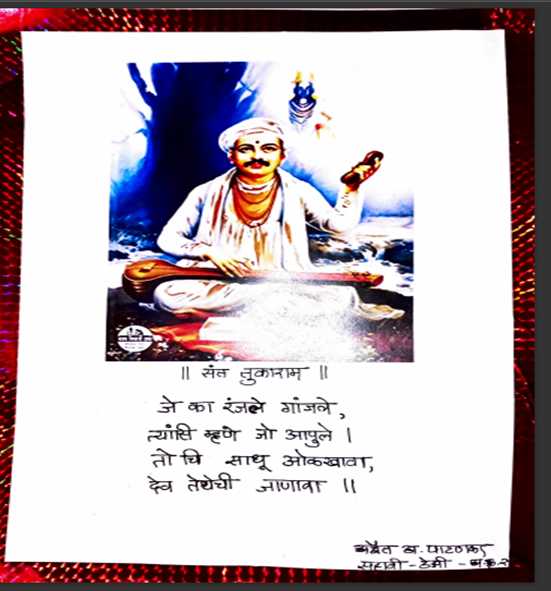 ॥ संत तुकाराम ॥
जे का रंजले गांजले,
त्यांसि म्हणे जो आपुले ।
तो चि साधू ओळखावा,
देव तेथेची जाणावा ॥
अद्वैत अ. पाटणकर
सहावी - टेमी -